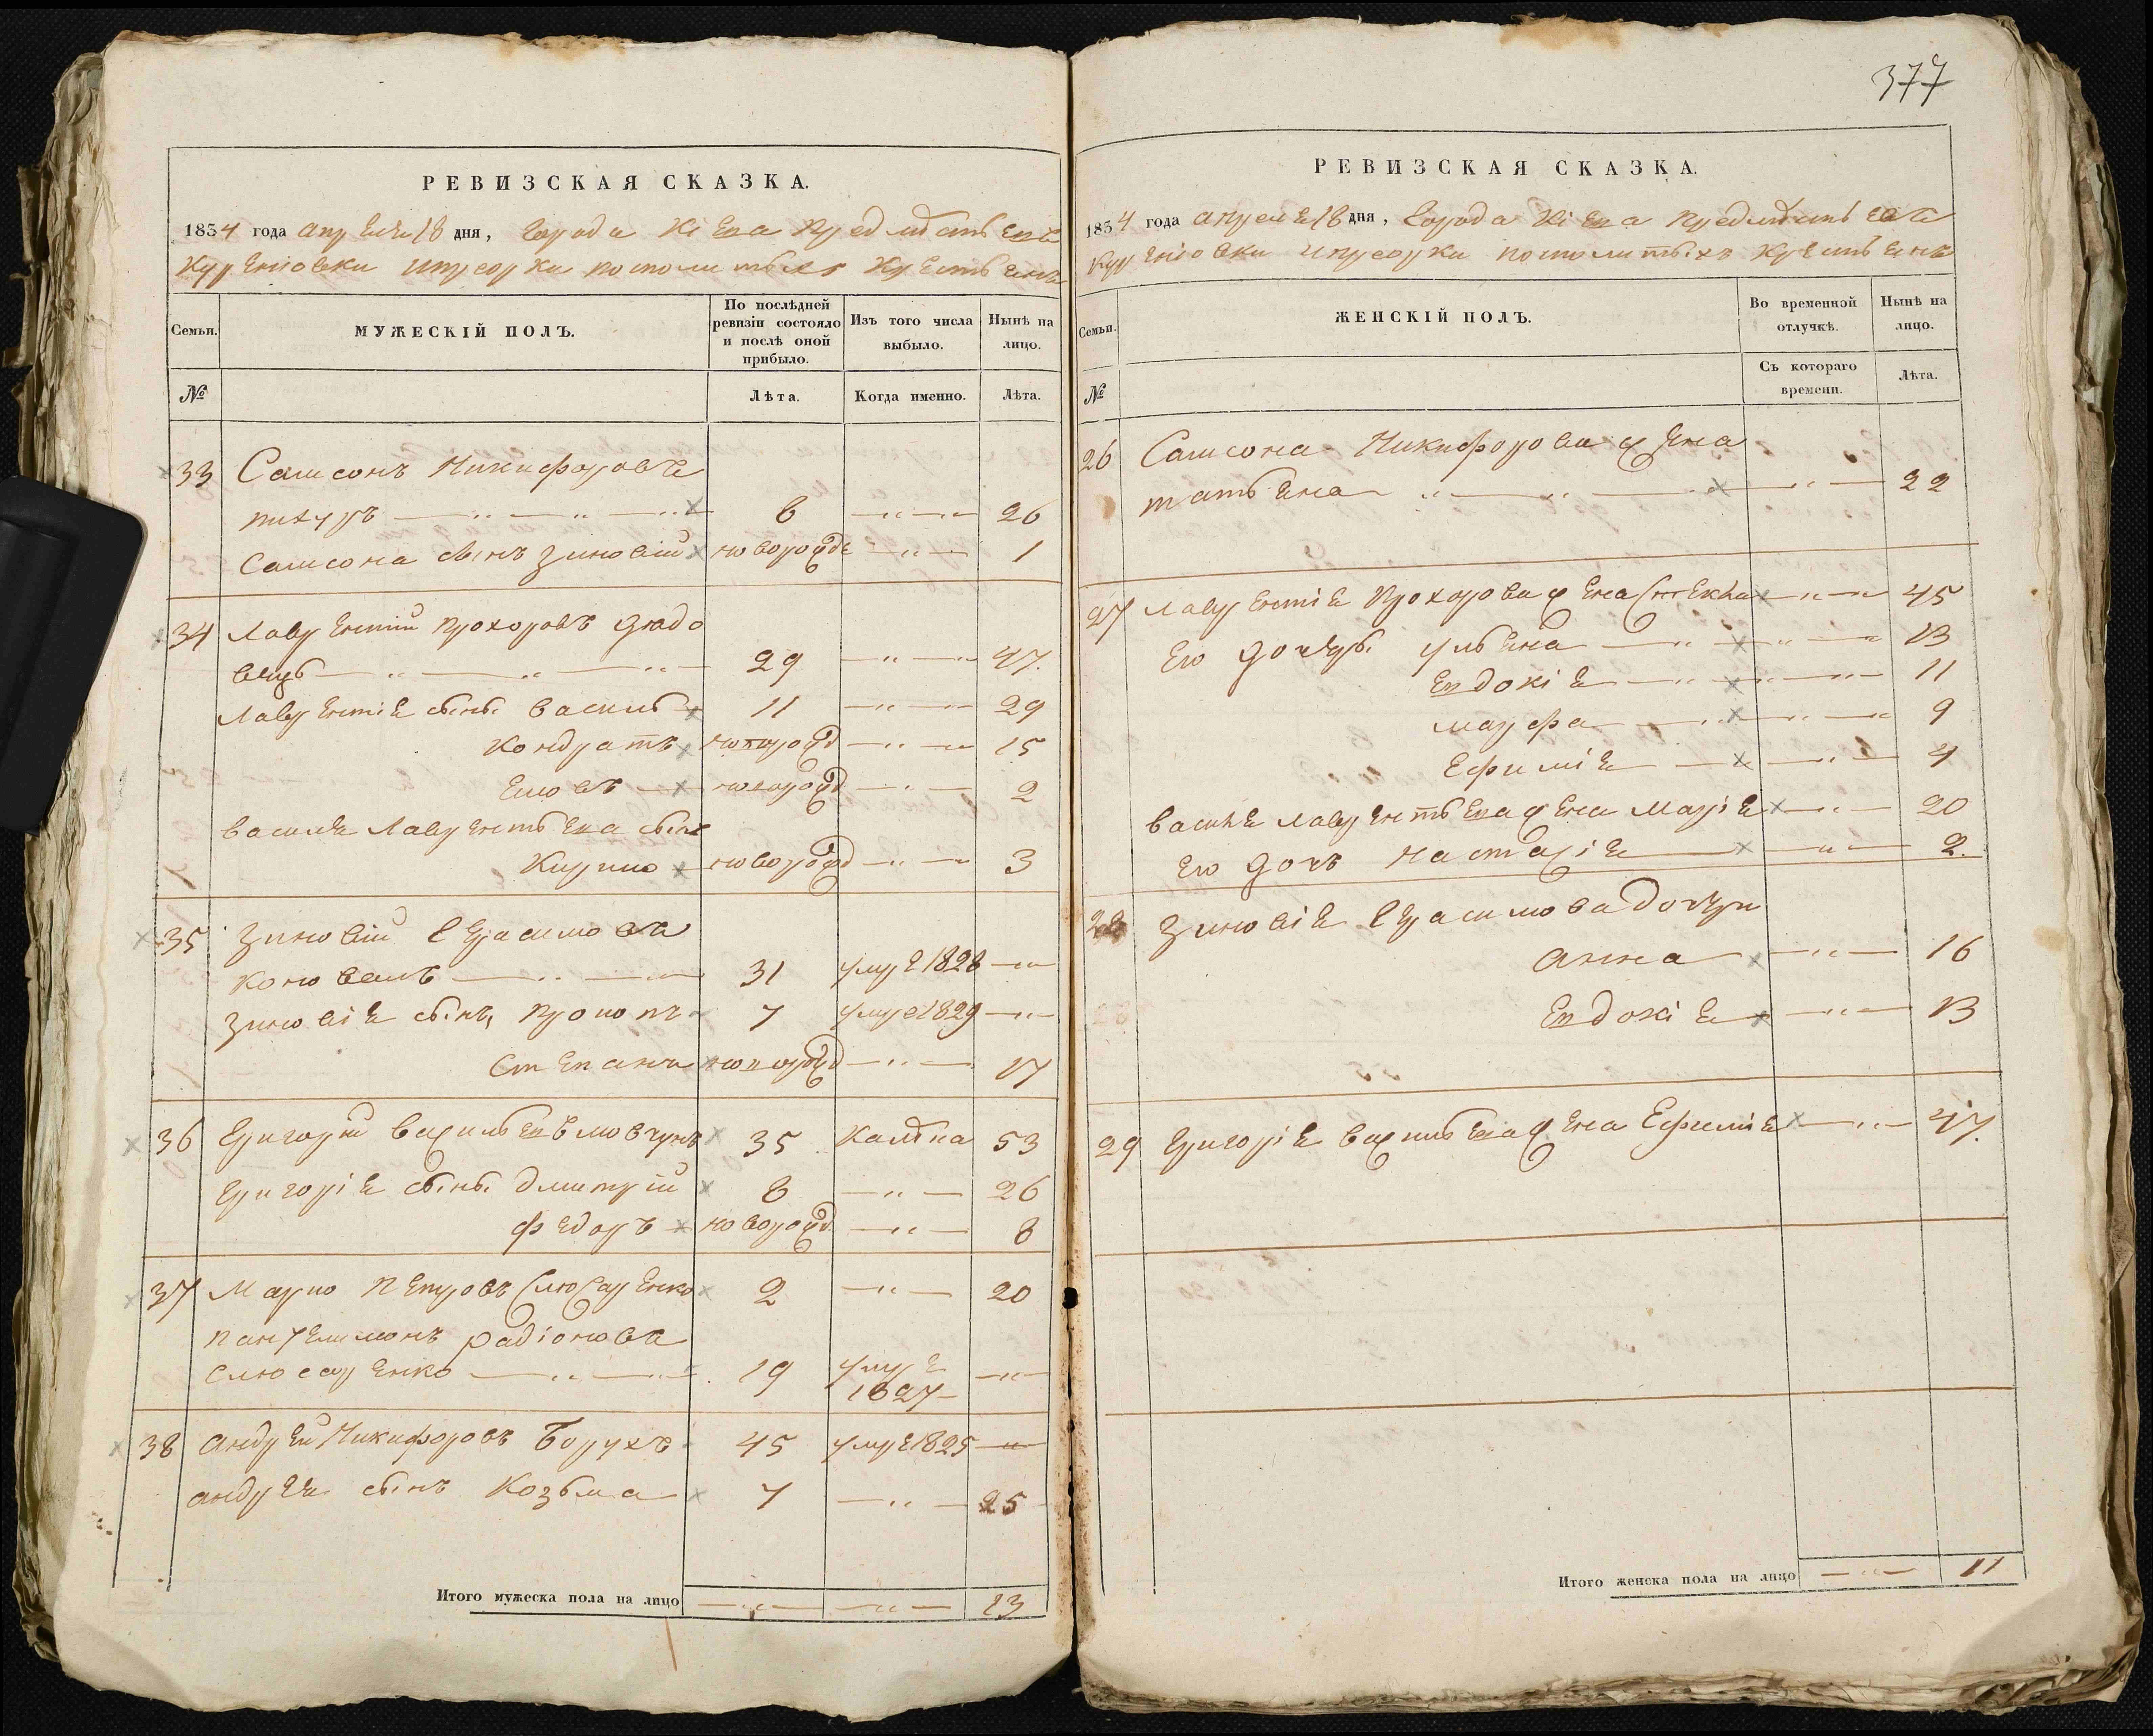 РЕВИЗСКАЯ СКАЗКА.
1834 года апреля 18 дня, города Кіева предмѣстьевъ
Куреновки и Пріорки посполитыхъ крестьянъ
Семьи. МУЖЕСКІЙ ПОЛЪ. По послѣдней ревизіи состояло и послѣ оной прибыло. Изъ того числа выбыло. Нынѣ на лицо.
№ Лѣта. Когда именно. Лѣта.
33 Самсонъ Никифоровъ
8 26
Самсона сынъ Зиновій новорожде 1
34 Лаврентій Прохоровъ Дядо
вецъ 29 47.
Лаврентія сыны Василь 11 29
Кондратъ новорожд 15
новорожд 2
Василя Лаврентьева сынъ
Кирило новорожд 3
35 Зиновій Герасимовъ
Коновалъ 31 умре 1828
Зиновія сынъ, Прокопъ 7 умре 1829
Степанъ новорожд 17
36 Григорій Васильевъ Мовчунъ 35 Калѣка 53
Григорія сыны Дмитрій 8 26
Федоръ новорожд. 8
37 Марко Петровъ Слюсаренко 2 20
Пантелимонъ Радіоновъ
Слюсаренко 19 умре
1827
38 Андрей Никифоровъ Борухъ 45 умре 1825
Андрея сынъ Козьма 7 25
Итого мужеска пола на лицо 13
377
РЕВИЗСКАЯ СКАЗКА.
1834 года апреля 18 дня, города Кіева предмѣстьевъ
Куреновки и Пріорки посполитыхъ крестьянъ
Семьи. ЖЕНСКІЙ ПОЛЪ. Во временной отлучкѣ. Нынѣ на лицо.
№ Съ котораго времени. Лѣта.
26 Самсона Никифорова жена
Татьяна 22
27 Лаврентія Прохорова жена 45
Его дочеры Ульяна 13
Евдокія 11
Марфа 9
Ефимія 4
Василя Лаврентьева жена Марія 20
Его дочъ Настасія 2.
28 Зиновія Герасимова дочери
Анна 16
Евдокія 13
29 Григорія Васильева жена Ефимія 47.
Итого женска пола на лицо 11